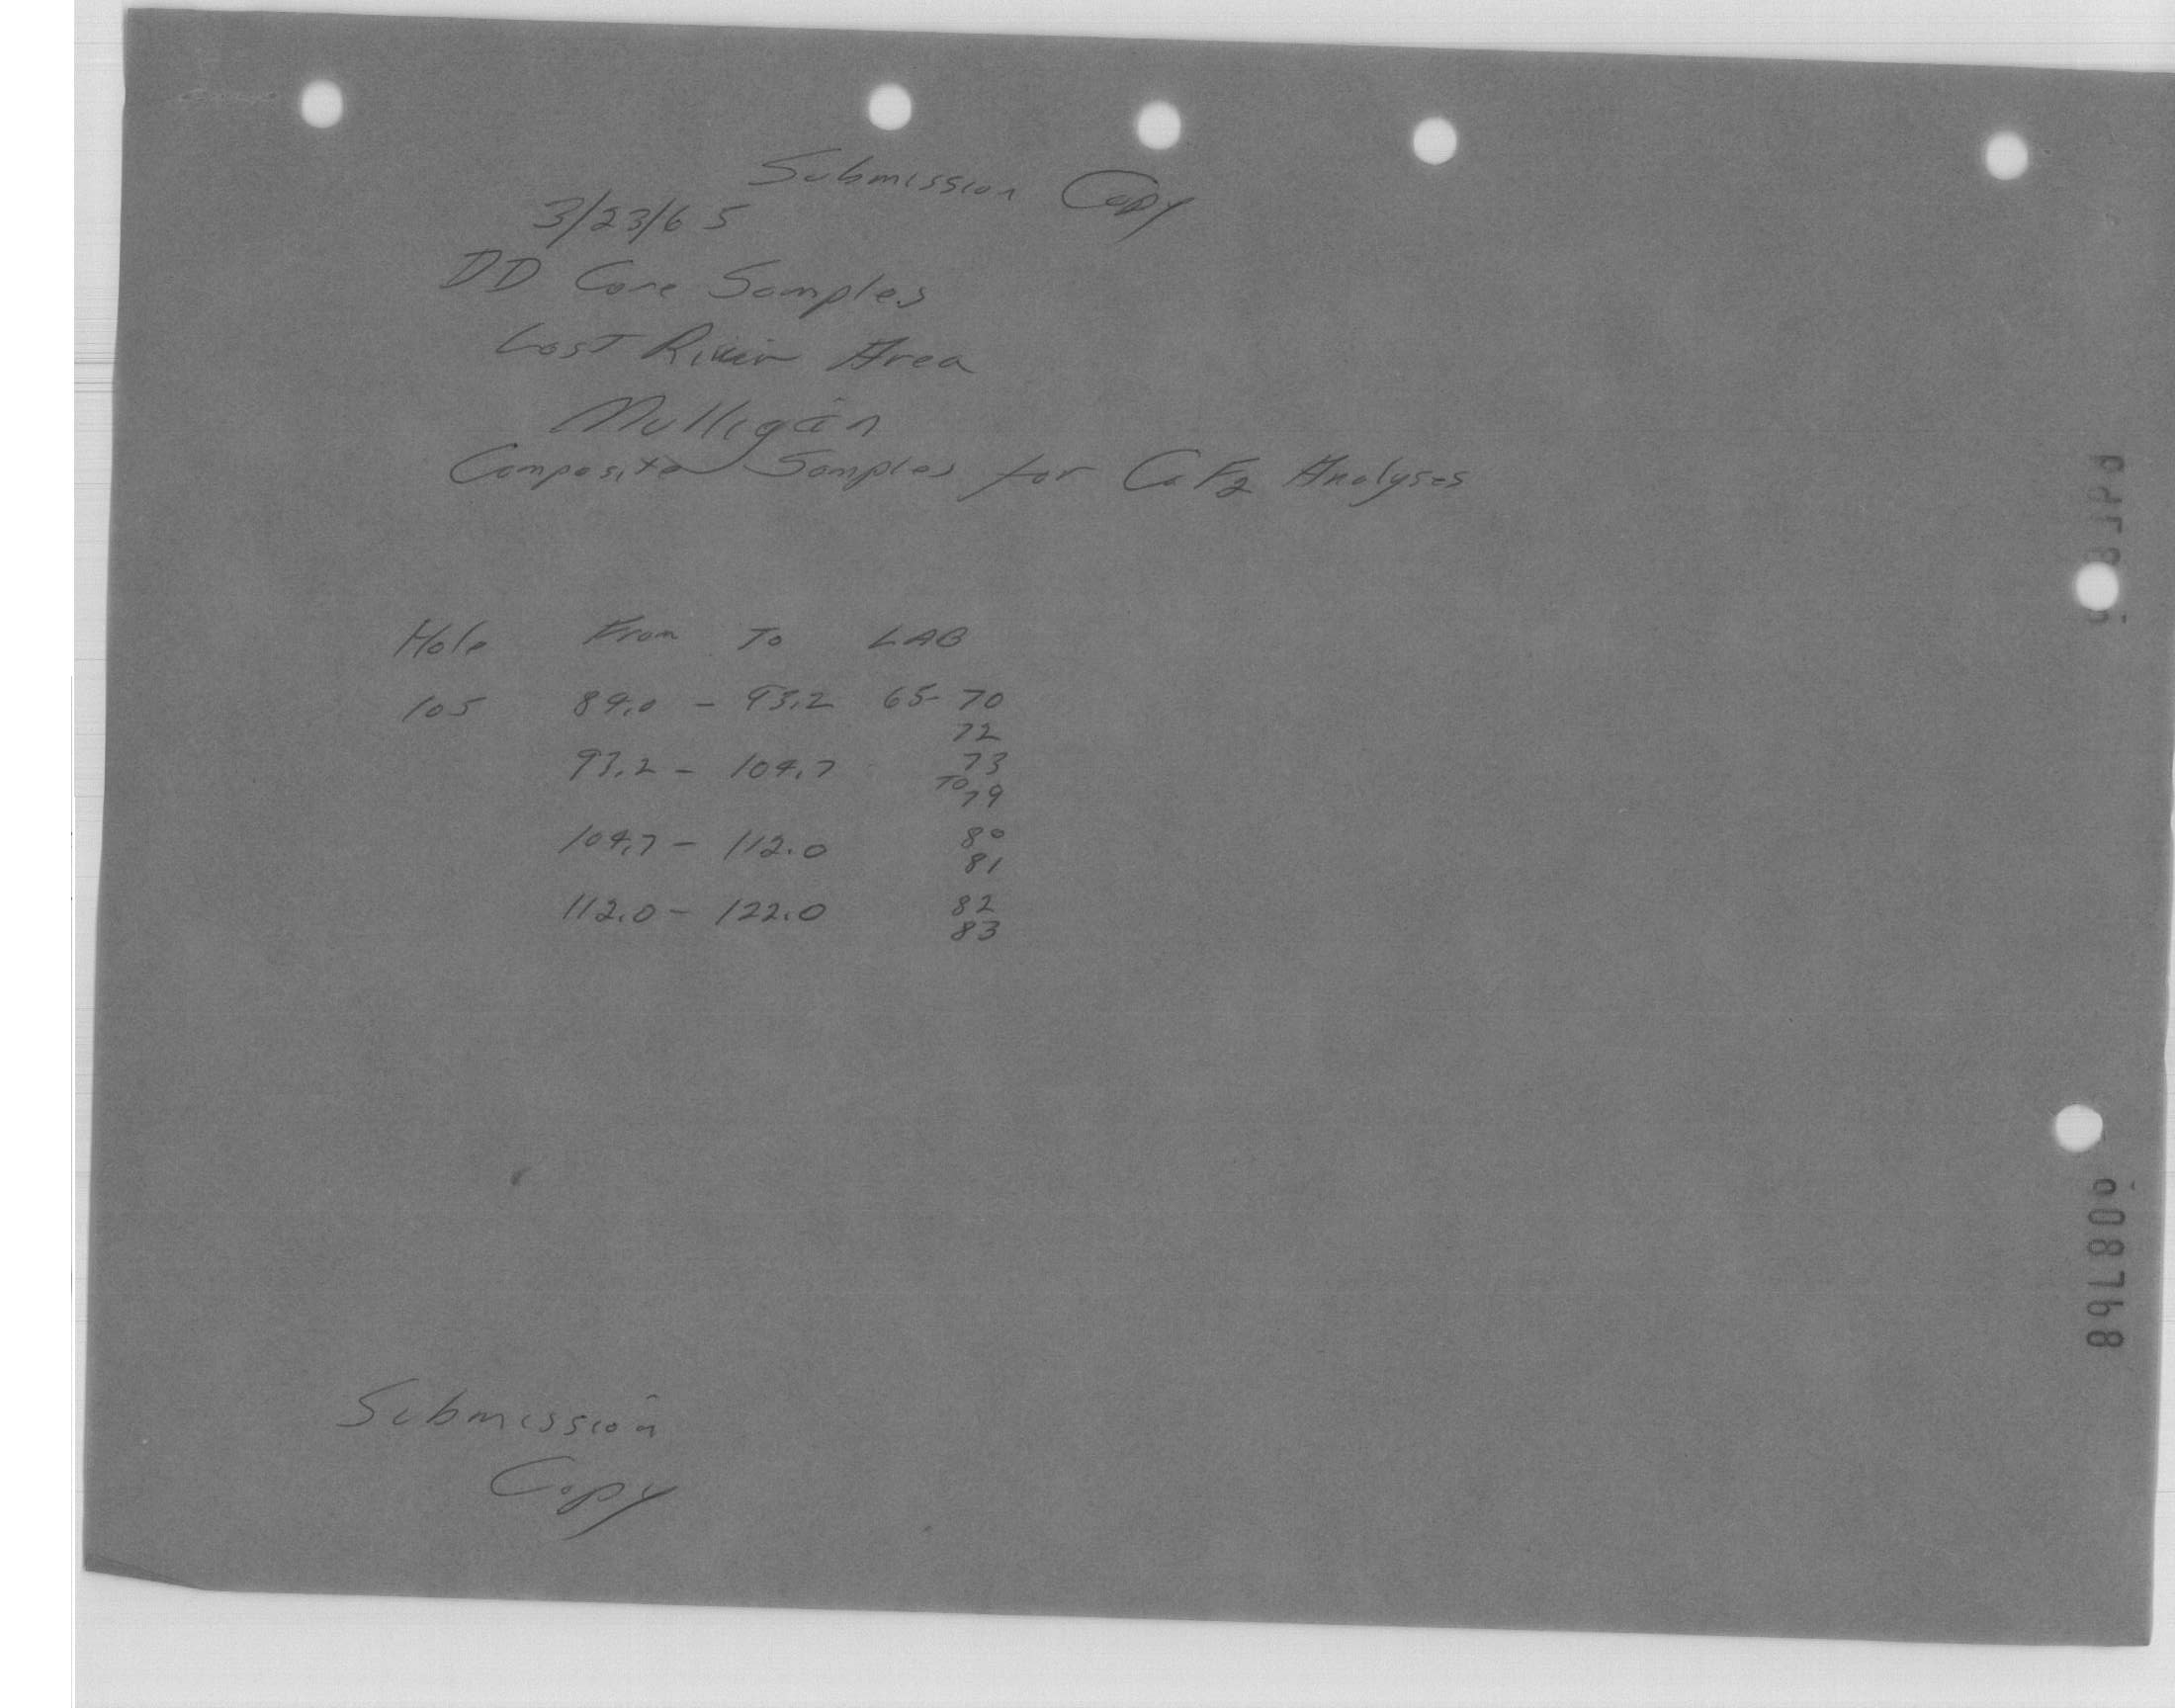 Submission Copy
3/23/65
DD Core Samples
Lost River Area
Mulligan
Composite Samples for CaF2 Analyses
Hole From To LAB
105 84.0 - 93.2 65-70
72
93.2 - 104.7 73
TO 79
104.7 - 112.0 80
81
112.0 - 122.0 82
83
008768
Submission
Copy